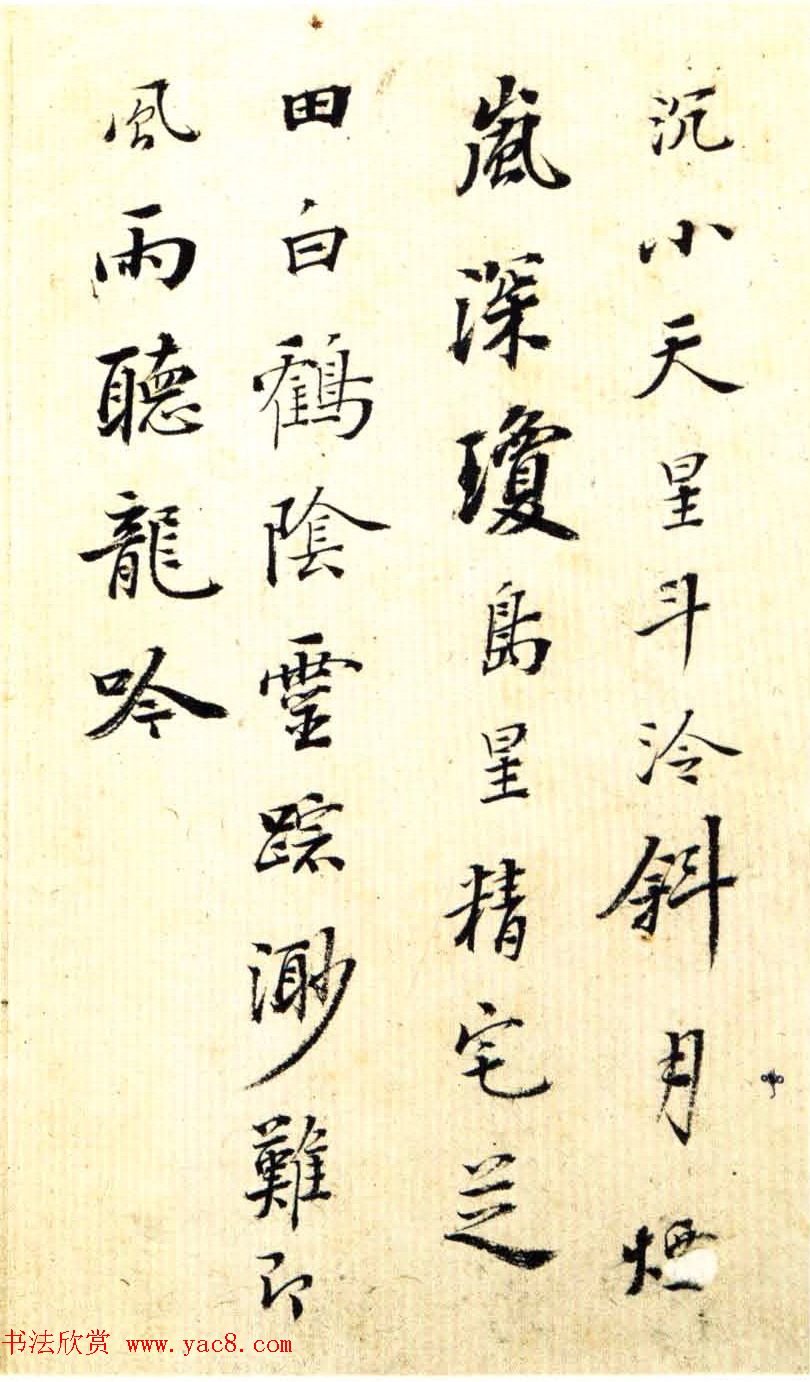 沉小天星斗泠斜月煙
嵐深瓊島星精宅芝
田白鶴陰靈踪渺難即
風雨聽龍吟
书法欣赏 www.yac8.com